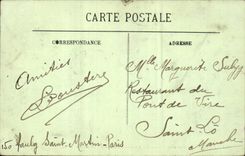 CARTE POSTALE
CORRESPONDANCE
ADRESSE
Amitiés
Mlle Marguerite
Restaurant du
Pont de Vire
Saint Lo
Manche
150 Saint-Martin-Paris